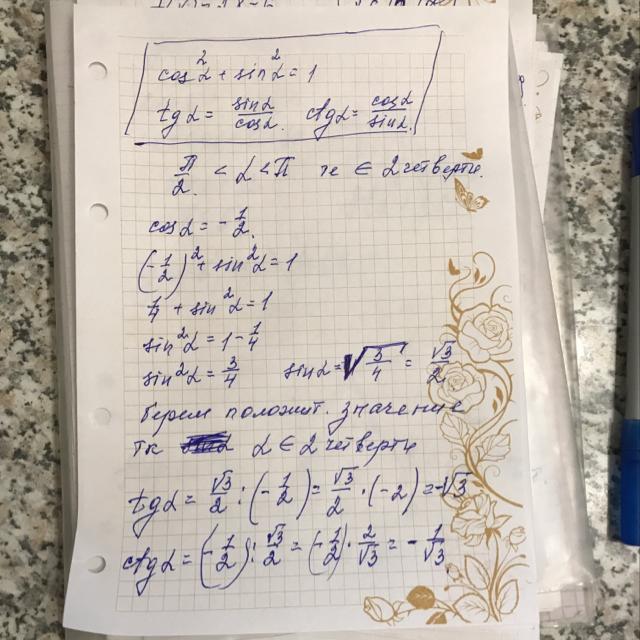 cos²α + sin²α = 1
tgα = sinα/cosα. ctgα = cosα/sinα.
π/2 < α < π те ∈ 2 четверти.
cosα = -1/2.
(-1/2)² + sin²α = 1
1/4 + sin²α = 1
sin²α = 1 - 1/4
sin²α = 3/4 sinα = √(3/4) = √3/2
берем положит. значение
тк α ∈ 2 четверти
tgα = √3/2 : (-1/2) = √3/2 · (-2) = -√3
ctgα = (-1/2) : √3/2 = (-1/2) · 2/√3 = - 1/√3